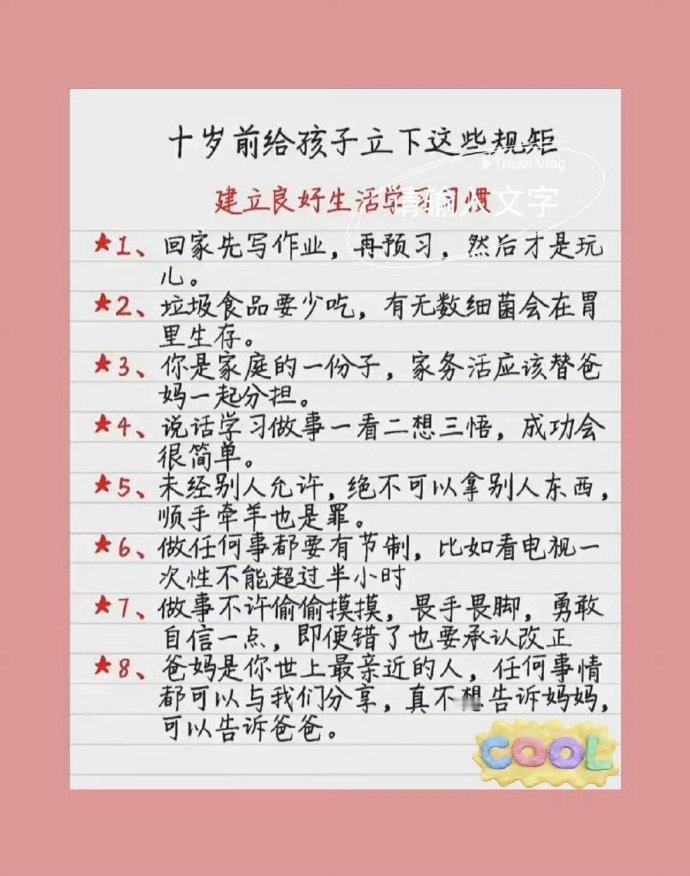 十岁前给孩子立下这些规矩
Travel Vlog
建立良好生活学习习惯
请输入文字
★1、回家先写作业，再预习，然后才是玩
儿。
★2、垃圾食品要少吃，有无数细菌会在胃
里生存。
★3、你是家庭的一份子，家务活应该替爸
妈一起分担。
★4、说话学习做事一看二想三悟，成功会
很简单。
★5、未经别人允许，绝不可以拿别人东西，
顺手牵羊也是罪。
★6、做任何事都要有节制，比如看电视一
次性不能超过半小时
★7、做事不许偷偷摸摸，畏手畏脚，勇敢
自信一点，即便错了也要承认改正
★8、爸妈是你世上最亲近的人，任何事情
都可以与我们分享，真不想告诉妈妈，
可以告诉爸爸。
COOL